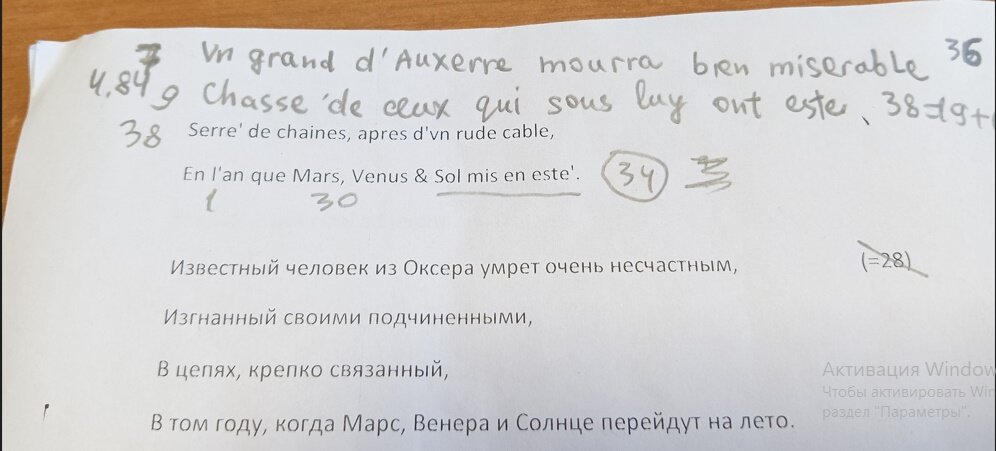 7 Vn grand d'Auxerre mourra bien miserable 36
4.84 9 Chasse 'de ceux qui sous luy ont este, 38=19+
38 Serre' de chaines, apres d'vn rude cable,
En l'an que Mars, Venus & Sol mis en este'. 34
1 30
Известный человек из Оксера умрет очень несчастным, (=28)
Изгнанный своими подчиненными,
В цепях, крепко связанный,
В том году, когда Марс, Венера и Солнце перейдут на лето.
Активация Window
Чтобы активировать Win
раздел "Параметры".